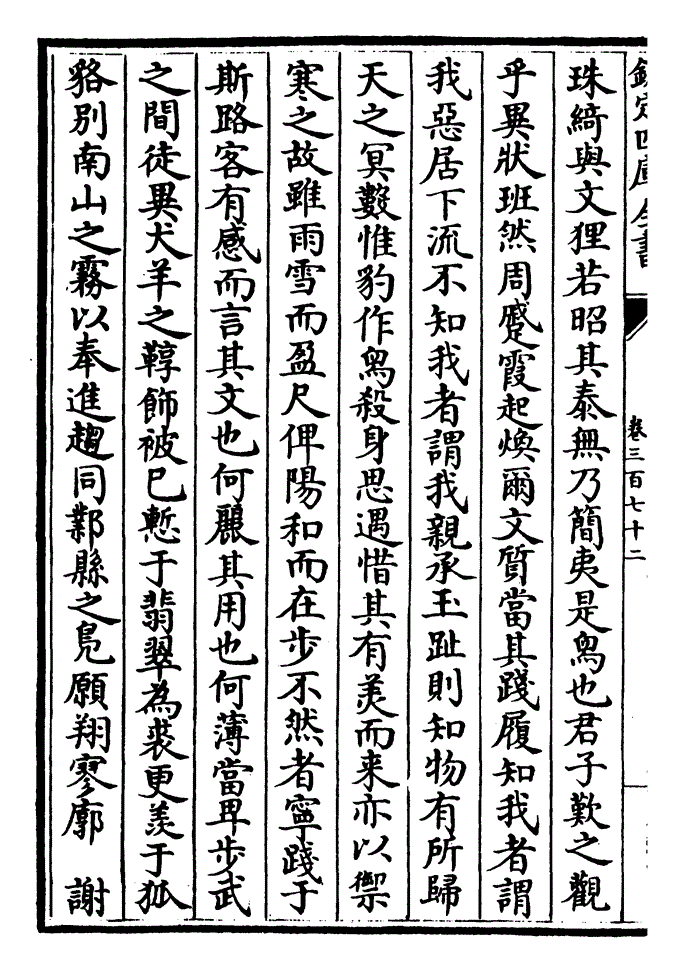 欽定四庫全書
卷三百七十二
珠綺與文狸若昭其泰無乃簡夷是舄也君子歎之觀
乎異狀班然周蹙霞起煥爾文質當其踐履知我者謂
我惡居下流不知我者謂我親承玉趾則知物有所歸
天之冥數惟豹作舄殺身思遇惜其有羙而来亦以禦
寒之故雖雨雪而盈尺俾陽和而在步不然者寧踐于
斯路客有感而言其文也何麗其用也何薄當畀步武
之間徒異犬羊之鞟飾被已慙于翡翠為裘更羨于狐
貉别南山之霧以奉進趨同鄴縣之鳬願翔寥廓　謝